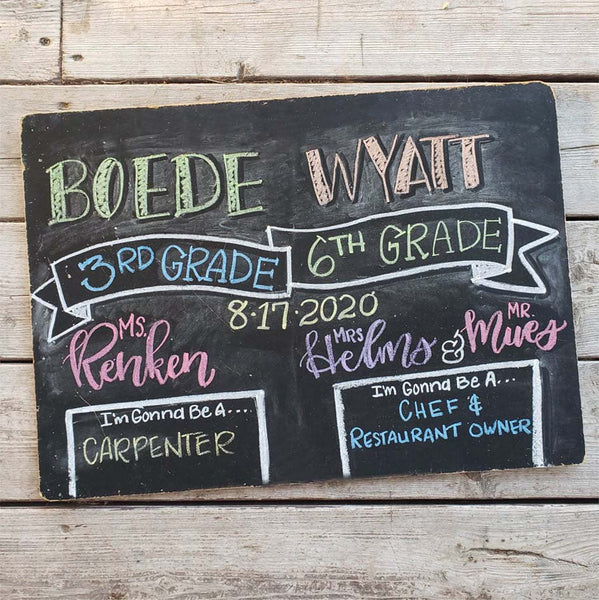 BOEDE WYATT
3RD GRADE 6TH GRADE
8.17.2020
MS. Renken
MRS Helms & MR. Mues
I'm Gonna Be A...
CARPENTER
I'm Gonna Be A...
CHEF &
RESTAURANT OWNER